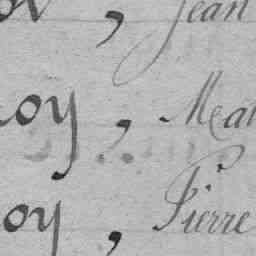 Jean
oy, Mat
oy, Pierre